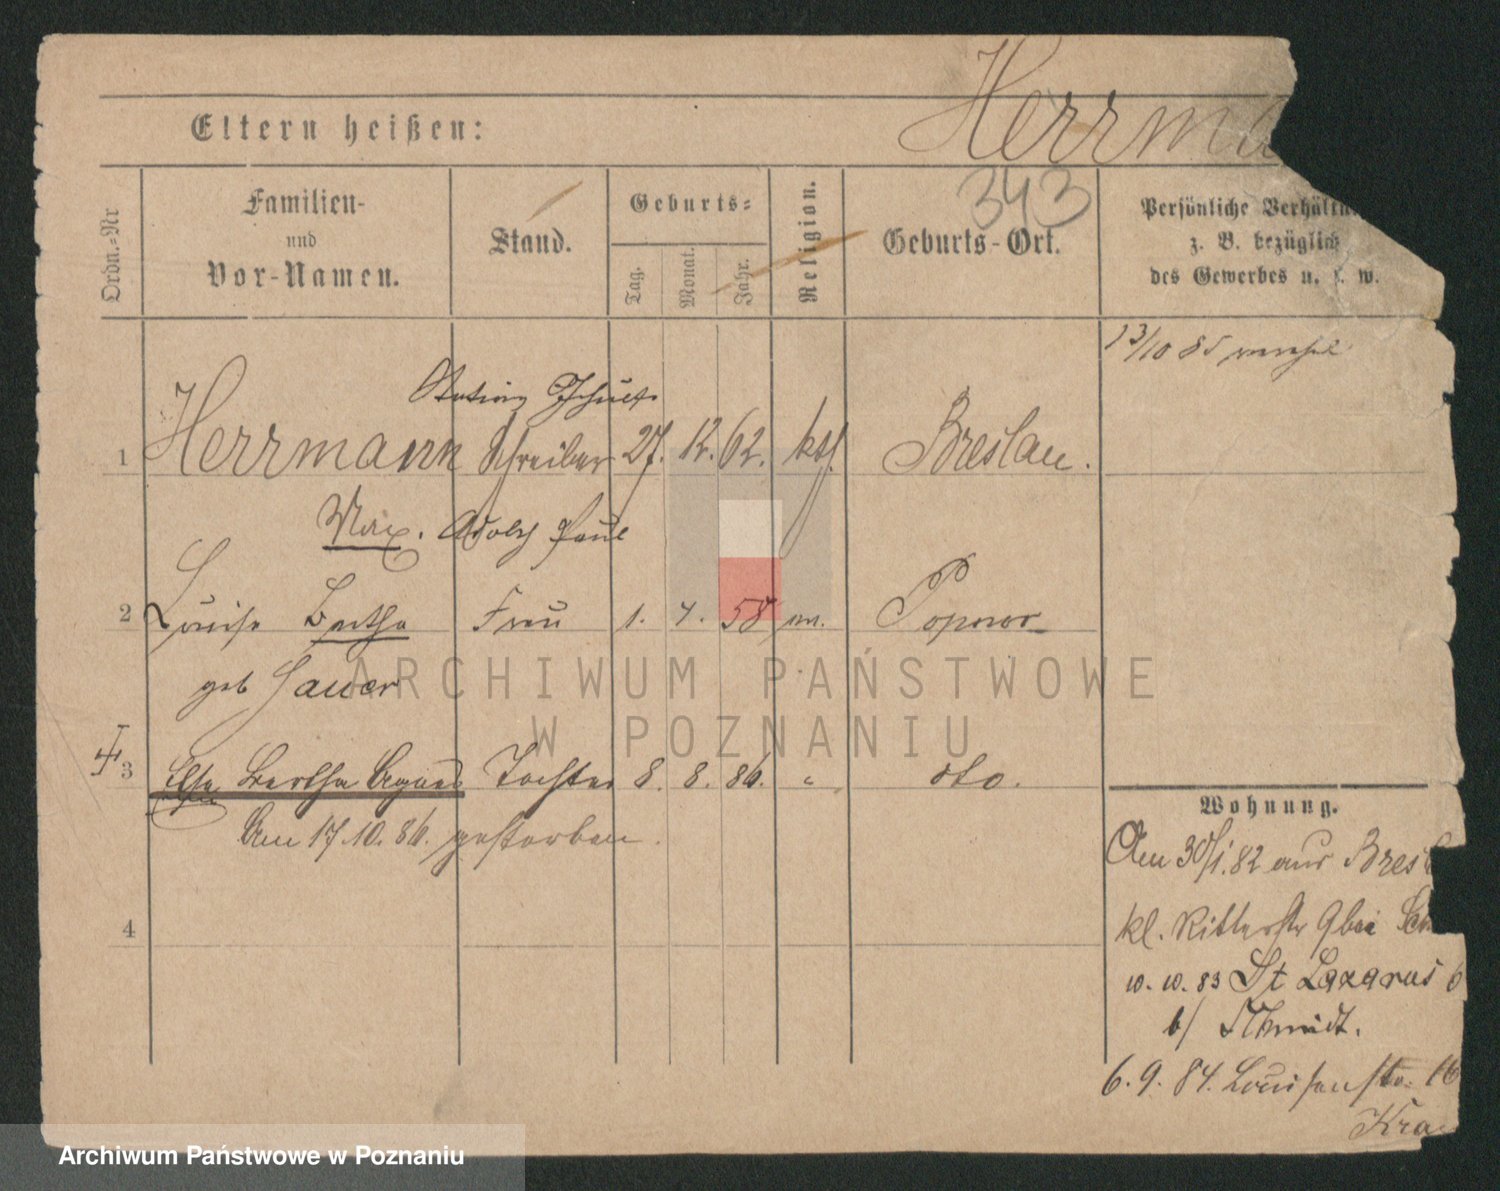 Herrma
Eltern heißen:
343
Ordn.=Nr
Familien-
und
Vor-Namen.
Stand.
Geburts=
Tag.
Monat.
Jahr.
Religion.
Geburts-Ort.
Persönliche Verhältn
z. B. bezüglich
des Gewerbes u. s. w.
13/10 85
Station
1 Herrmann Schreiber 27. 12. 62. kth. Breslau.
Max. Adolf Paul
2 Louise Bertha Frau 1. 4. 58
geb Sauer
3 Else Bertha Agnes Tochter 8. 8. 86. " dto.
Am 17.10.86. gestorben.
4
Wohnung.
Am 30/1.82 aus Bresl
kl. Ritterstr 9 bei
10. 10. 83 St Lazarus 6
b/ Schmidt.
6. 9. 84. Louisenstr. 16
Kra
ARCHIWUM PAŃSTWOWE
W POZNANIU
Archiwum Państwowe w Poznaniu